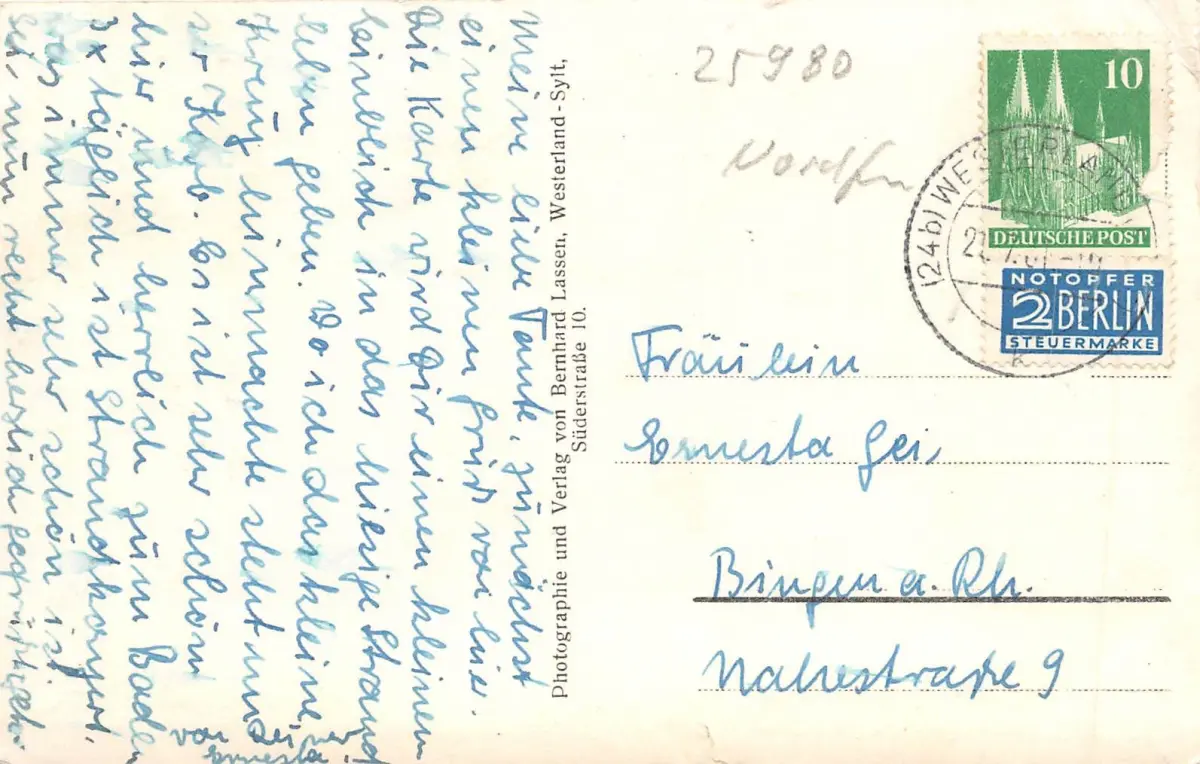 Meine liebe Tante, zunächst
einen kleinen Gruß von hier.
Die Karte wird Dir einen kleinen
Einblick in das hiesige Strand
leben geben. Wo ich das kleine
Kreuz hinmachte steht unser
Korb. Es ist sehr schön
hier und herrlich zum Baden
3x täglich ist Strandkonzert.
was immer sehr schön ist
Sei nun recht herzlich gegrüßt
von Deiner
Ernesta
Photographie und Verlag von Bernhard Lassen, Westerland-Sylt,
Süderstraße 10.
25980
10
DEUTSCHE POST
NOTOPFER
2 BERLIN
STEUERMARKE
(24b) WESTERLAND
Fräulein
Ernesta Gei
Bingen a. Rh.
Nahestraße 9